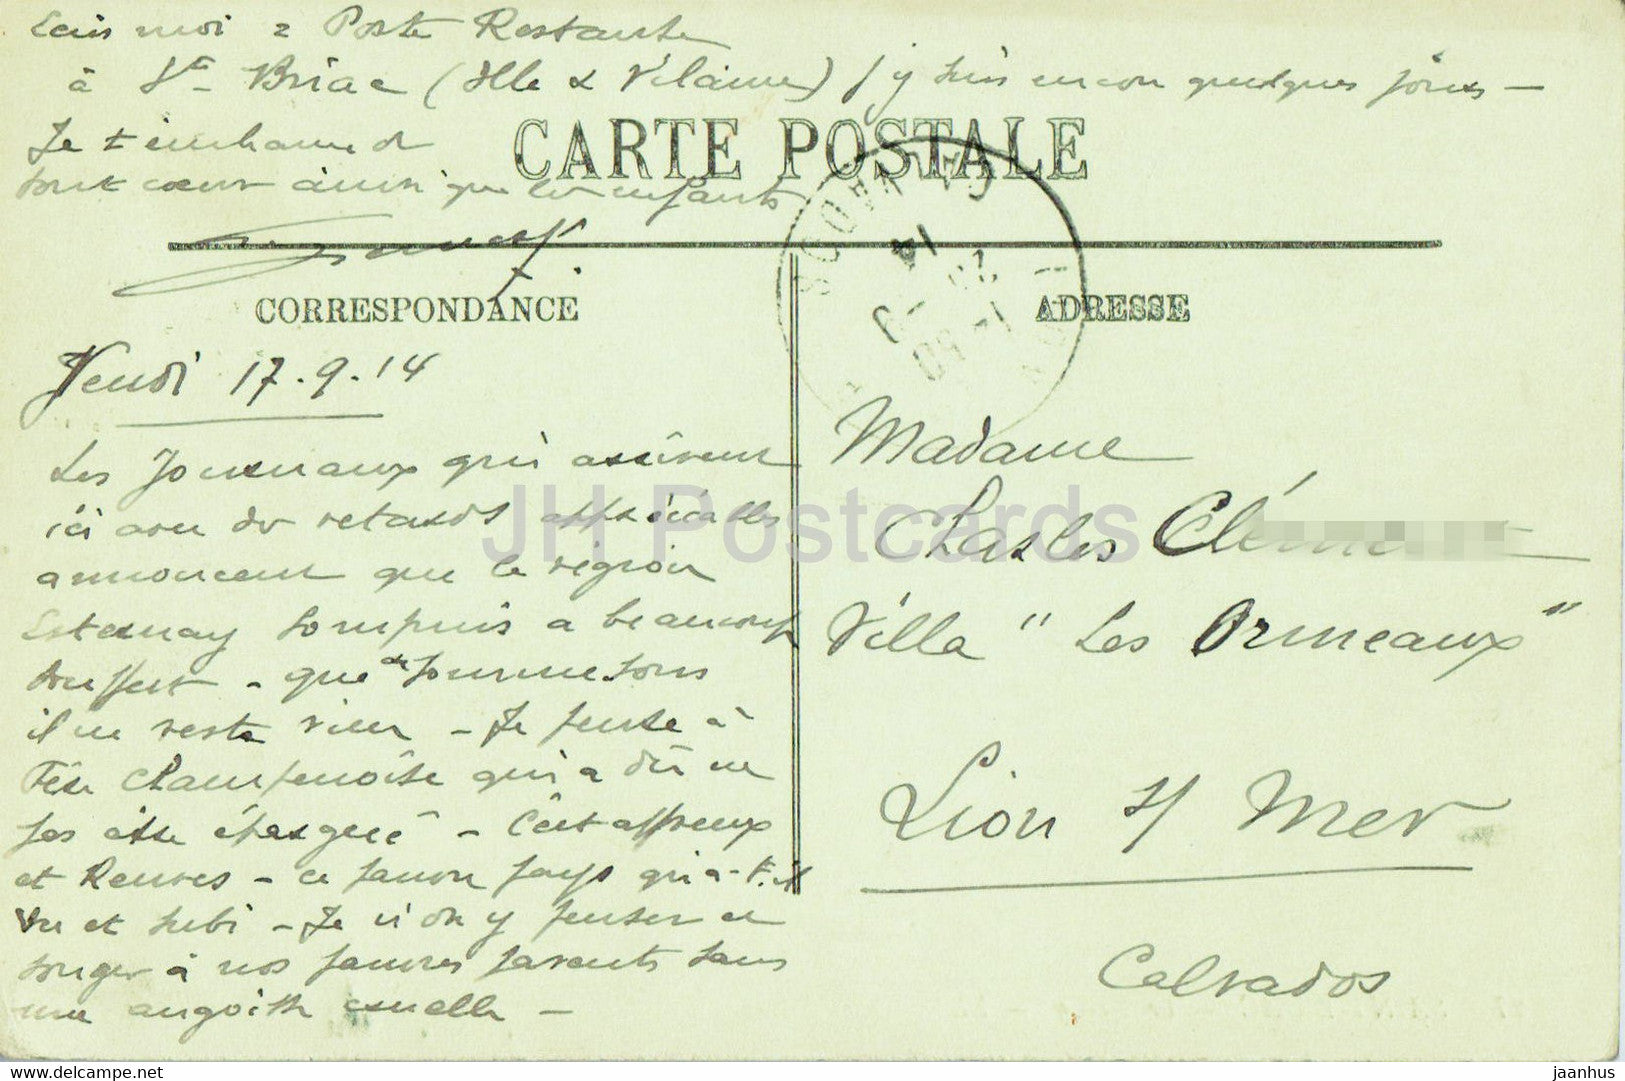 Ecris moi = Poste Restante
à St Briac (Ille & Vilaine) j'y suis encore quelques jours —
Je t'embrasse de
tout coeur ainsi que les enfants
CARTE POSTALE
CORRESPONDANCE
ADRESSE
Jeudi 17.9.14
Les Journaux qui arrivent
ici avec des retards appréciables
annoncent que la région
Esternay Sompuis a beaucoup
souffert - que de Sommesous
il ne reste rien - Je pense à
Fère Champenoise qui a dû ne
pas être épargné - C'est affreux
et Rennes - ce pauvre pays qu'a-t-il
vu et subi - Je n'ose y penser et
songer à nos pauvres parents sans
une angoisse cruelle -
Madame
Charles Clém
Villa "Les Ormeaux"
Lion s/ Mer
Calvados
JH Postcards
https://www.delcampe.net
jaanhus